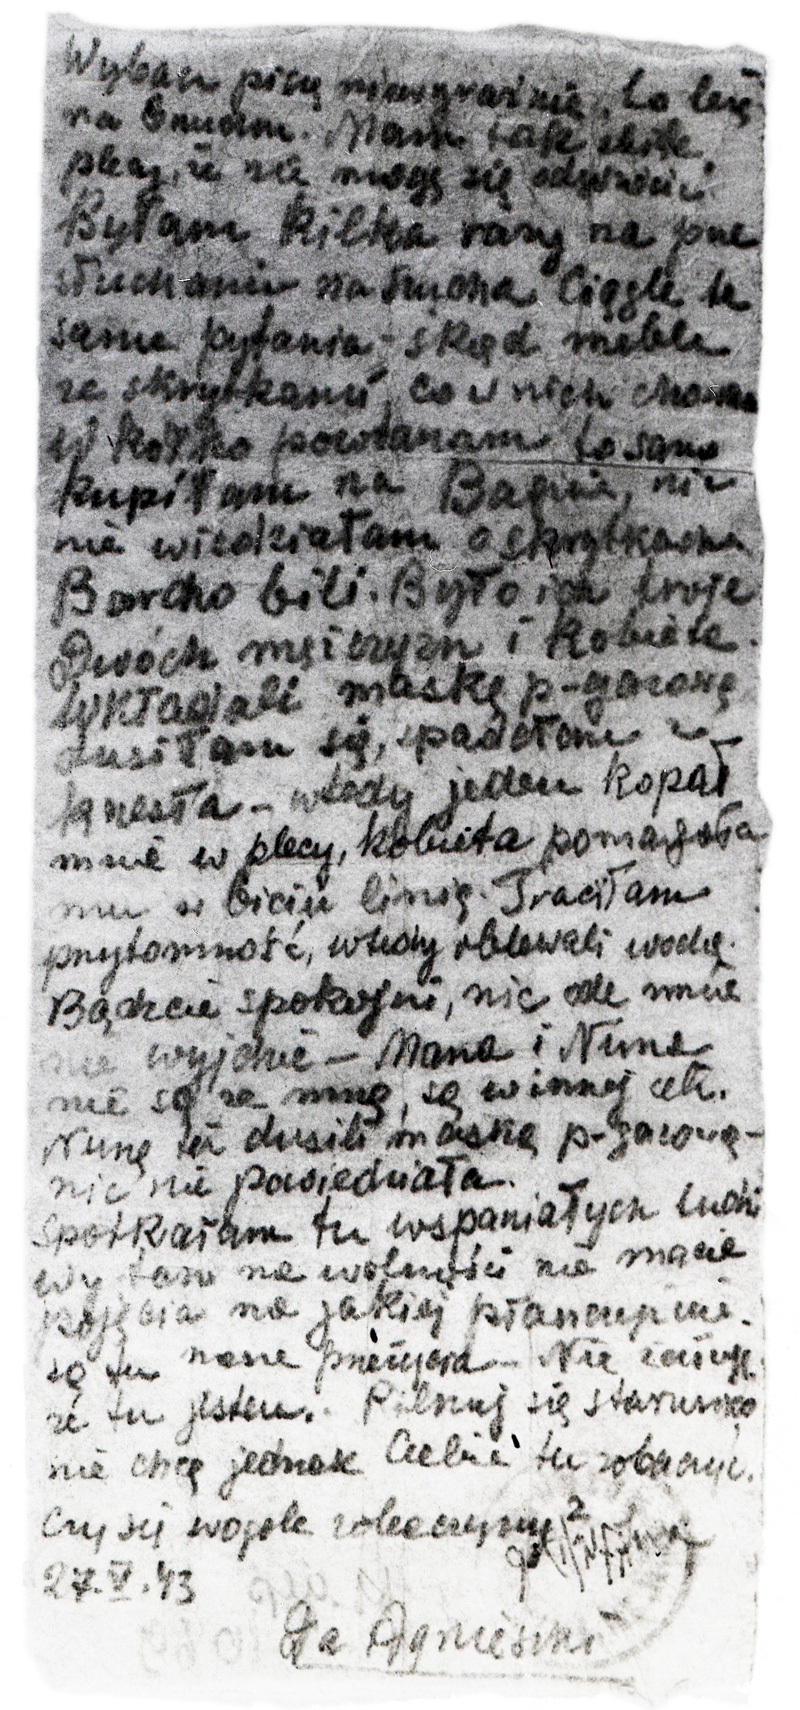 Wybacz piszę niewyraźnie, bo leżę
na brzuchu. Mam tak zbite
plecy, że nie mogę się odwrócić.
Byłam kilka razy na prze
słuchaniu na Szucha. Ciągle te
same pytania - skąd meble
ze skrytkami co w nich chowa
W kółko powtarzam to samo
kupiłam na Bagnie, nic
nie wiedziałam o skrytkach
Bardzo bili. Było ich troje
Dwóch mężczyzn i kobieta.
Wkładali maskę p-gazową
dusiłam się, spadałam z
krzesła - wtedy jeden kopał
mnie w plecy, kobieta pomagała
mu w biciu linią. Traciłam
przytomność, wtedy oblewali wodą.
Bądźcie spokojni, nic ode mnie
nie wyjdzie - Mana i Nuna
nie są ze mną, są w innej celi.
Nunę też dusili maską p-gazową -
nic nie powiedziała.
Spotkałam tu wspaniałych ludzi
wy tam na wolności nie macie
pojęcia na jakiej płaszczyźnie
są tu nasze przeżycia - Nie żałuję
że tu jestem. Pilnuj się staruszko
nie chcę jednak Ciebie tu zobaczyć.
Czy się wogóle zobaczymy?
27.V.43
Za Agnieszki